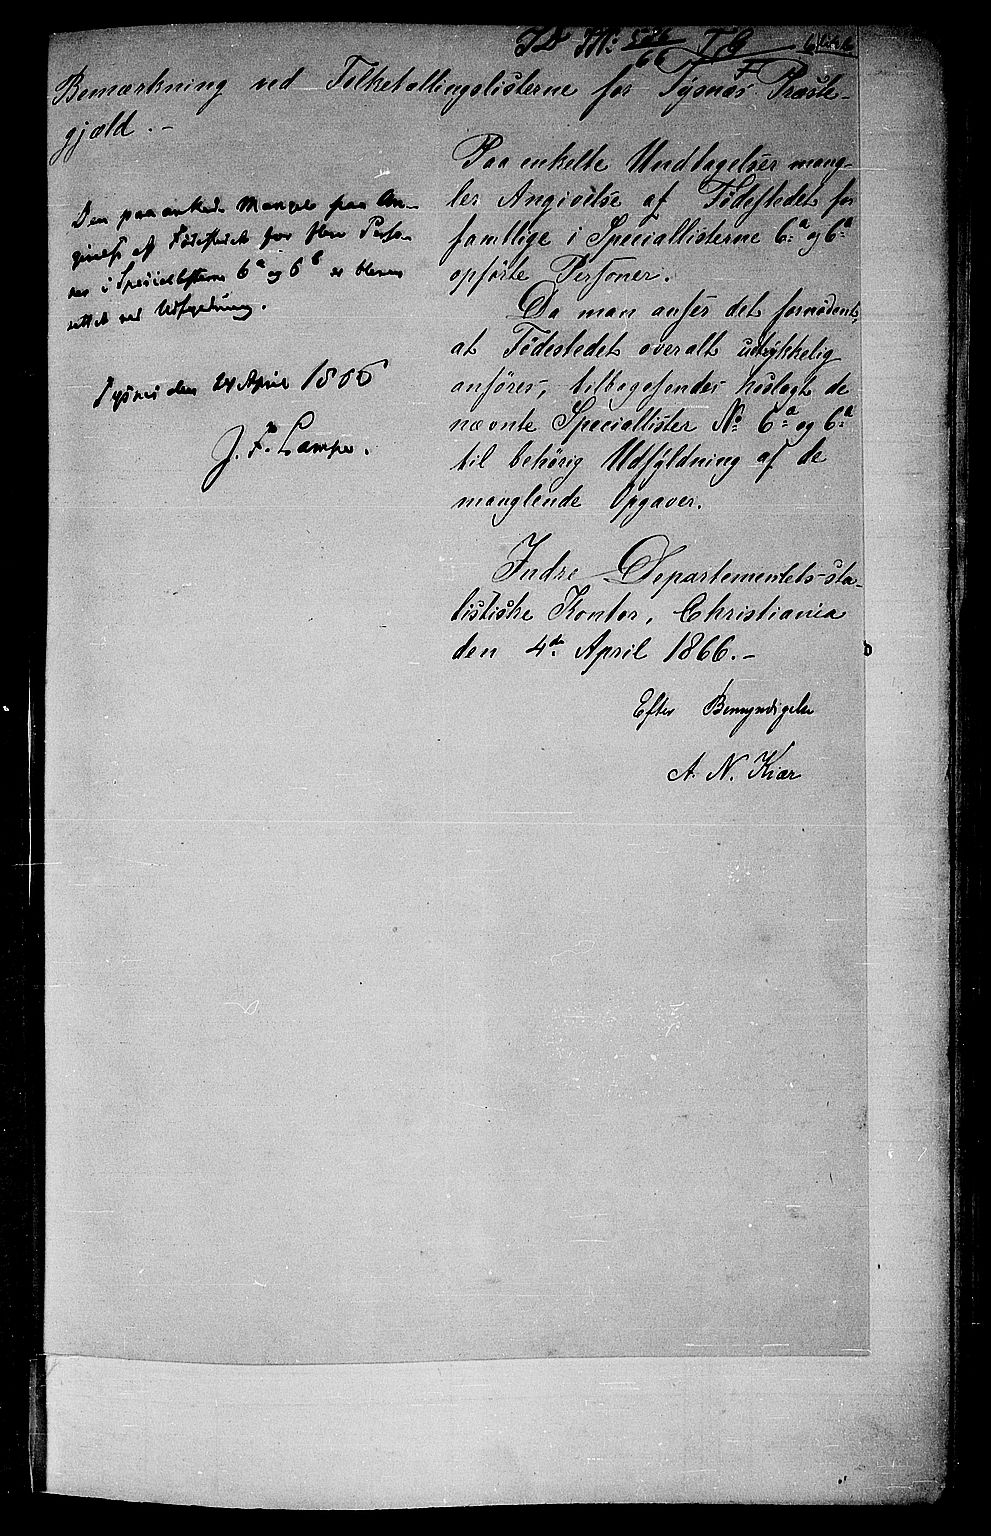 Bemærkning ved Folketællingslisterne for Tysnæs Præste-
gjæld.-
Paa enkelte Undtagelser mang-
ler Angivelse af Födestedet for
samtlige i Speciallisterne 6a og 6a
opførte Personer.
Da man anser det fornødent,
at Födestedet overalt udtrykkelig
anföres, tilbagesendes hoslagt de
nævnte Speciallister No 6a og 6a
til behörig Udfyldning af de
manglende Opgaver.
Indre Departementets sta-
tistiske Kontor, Christiania
den 4de April 1866.-
Efter Bemyndigelse
A. N. Kiær
Den paaankede Mangel paa An-
givelse af Födestedet for flere Perso-
ner i Speciallisterne 6a og 6b er bleven
rettet ved Udfyldning.
Tysnes den 24 April 1866
J. F. Lampe.